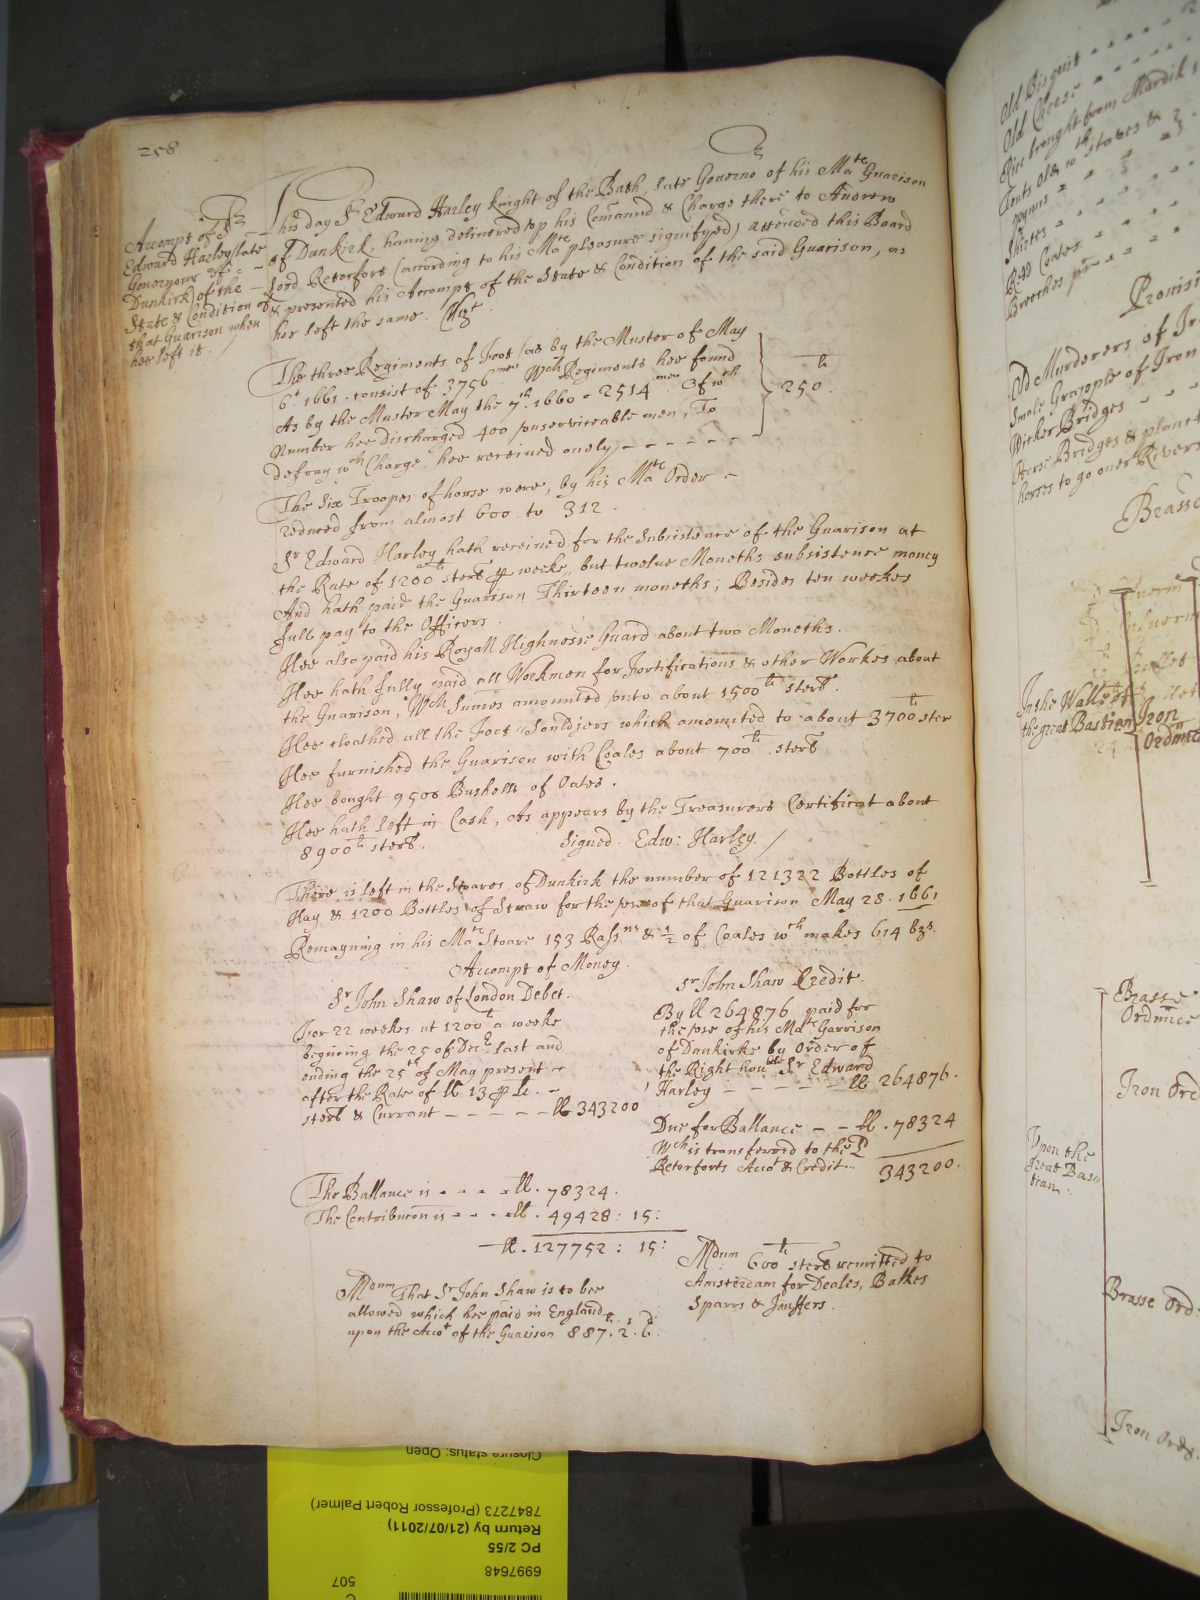 258
Accompt of Sr
Edward Harley late
Governour of
Dunkirk of the
State & Condition of
that Guarison when
hee left it.
This day Sr Edward Harley knight of the Bath, late Governo of his Mate Guarison
of Dunkirk, haning delivered vp his Comannd & Charge there to Andrew
Lord Retorfort (according to his Mate pleasure signifyed) attended this Board
& presented his Accompt of the State & Condition of the said Guarison, as
hee left the same. Vizt.
The three Regiments of Foot (as by the Muster of May
6t 1661. consist of 3756 men Wch Regiments hee found
As by the Muster May the 7th 1660 - 2514 men Of wch
Number hee discharged 400 vnserviceable men, To
defray wch Charge, hee received onely - - - - - -
250 li.
The Six Troopes of horse were, by his Mate Order -
reduced from almost 600 to 312.
Sr Edward Harley hath received for the Subsistence of the Guarison at
the Rate of 1200 li sterl p weeke, but twelue Moneths subsistence money
And hath paid the Guarison Thirteen moneths; Besides ten weekes
full pay to the Officers.
Hee also paid his Royall Highnesse Guard about two Moneths.
Hee hath fully paid all Workmen for Fortifications & other Workes about
the Guarison, Wch Sumes amounted vnto about 1500 li sterl.
Hee cloathed all the Foot Souldjers which amounted to about 3700 li ster
Hee furnished the Guarison with Coales about 700 li sterl.
Hee bought 9500 Bushells of Oates.
Hee hath left in Cash, As appears by the Treasurers Certificat about
8900 li sterl. Signed. Edw: Harley. /
There is left in the Stoares of Dunkirk the number of 121322 Bottles of
Hay & 1200 Bottles of Straw for the vse of that Guarison May 28. 1661
Remayning in his Mate Stoare 153 Rassns & 1/2 of Coales wch makes 614 bzs.
Accompt of Money.
Sr John Shaw of London Debet.
For 22 weekes at 1200 li a weeke
begining the 25 of Decr last and
ending the 25th of May present
after the Rate of ll 13 p li. -
sterl & Currant - - - - - ll 343200
Sr John Shaw Credit.
By ll 264876 paid for
the vse of his Mate Garrison
of Dunkirke by Order of
the Right honble Sr Edward
Harley - - - - - - ll 264876.
Due for Ballance - - ll. 78324
Wch is transferred to the L
Retorforts Accot & Credit.. 343200.
The Ballance is - - - - ll. 78324.
The Contribucon is - - - ll. 49428: 15:
ll. 127752: 15:
Mdum That Sr John Shaw is to bee
allowed which hee paid in England
upon the Accot of the Guaison 887li. 2s. 6d
Mdum 600 li sterl remitted to
Amsterdam for Deales, Balkes
Sparrs & Jouffers.
Old Bisquit
Old Cheese
Rice brought from Mardik
Tents old wth Staves &
Shirtes
Redd Coates
Breeches pr
Provisi
Old Murderers of Ir
Smale Grapple of Iron
Wicker Bridges
Horse Bridges & planck
horses to go over Rivers
Brasse
In the Walls of
the great Bastien
Iron
Ordnnce
Brasse
Ordnnce
Iron Ord
Upon the
great Bas
tian.
Brasse Ord:
Iron Ord:
Closure status: Open
7847273 (Professor Robert Palmer)
Return by (21/07/2011)
PC 2/55
6997648
507